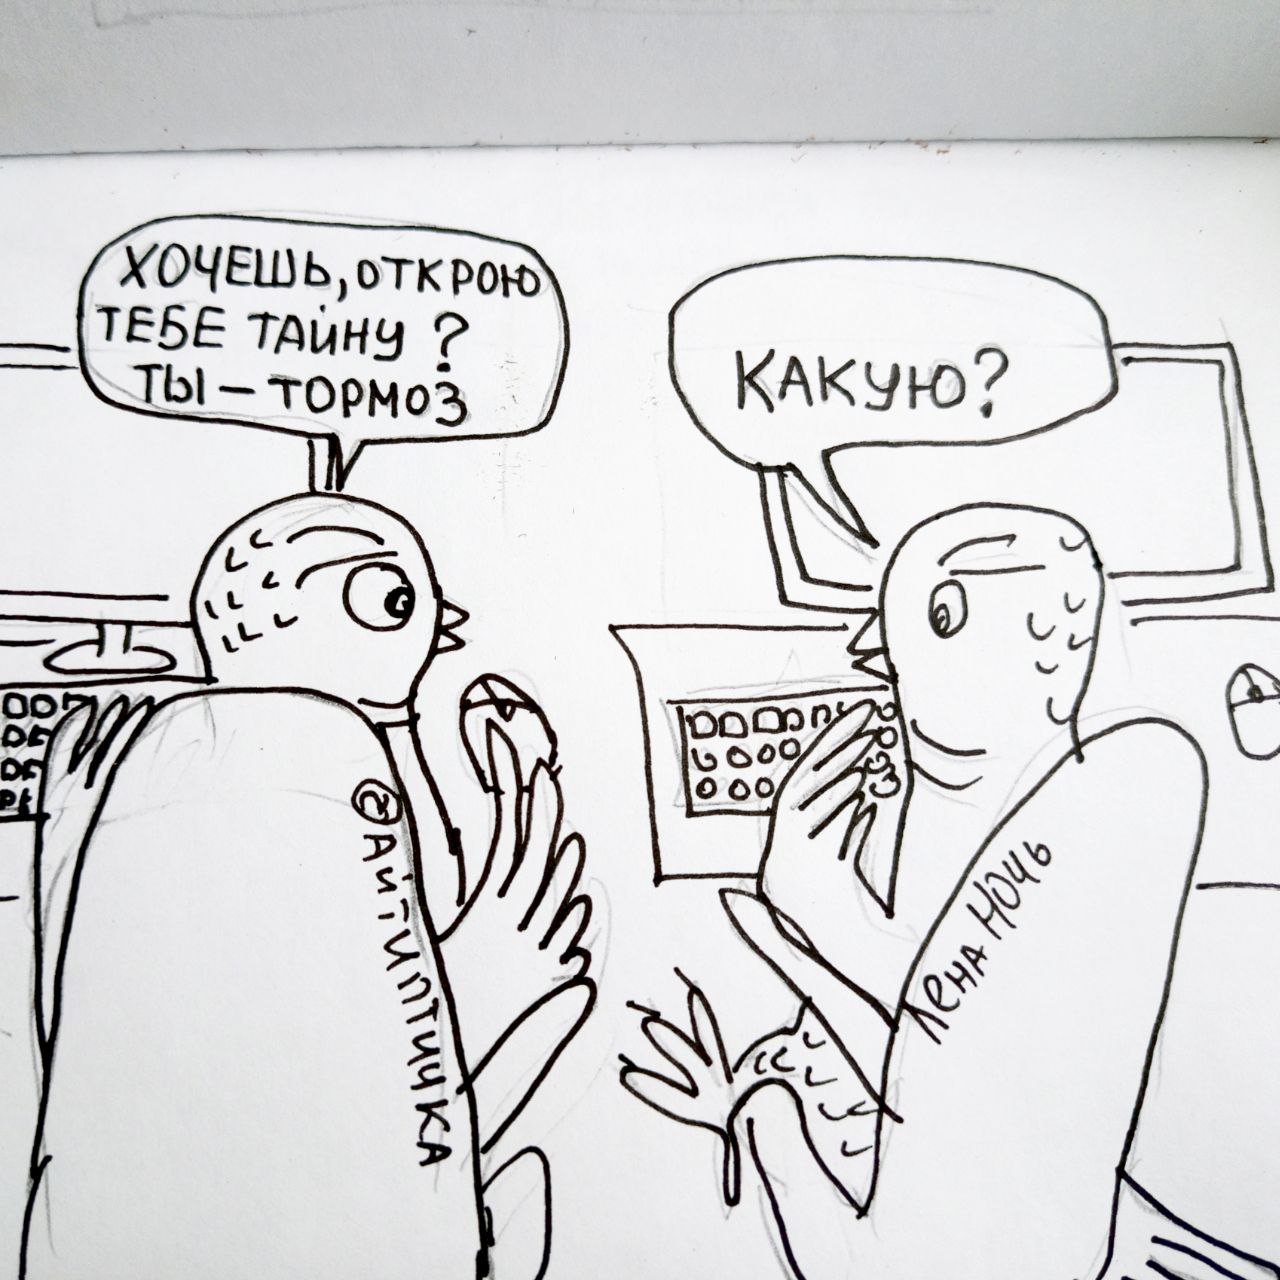 ХОЧЕШЬ, ОТКРОЮ
ТЕБЕ ТАЙНУ?
ТЫ – ТОРМОЗ
КАКУЮ?
@АЙТИПТИЧКА
ЛЕНА НОЧЬ